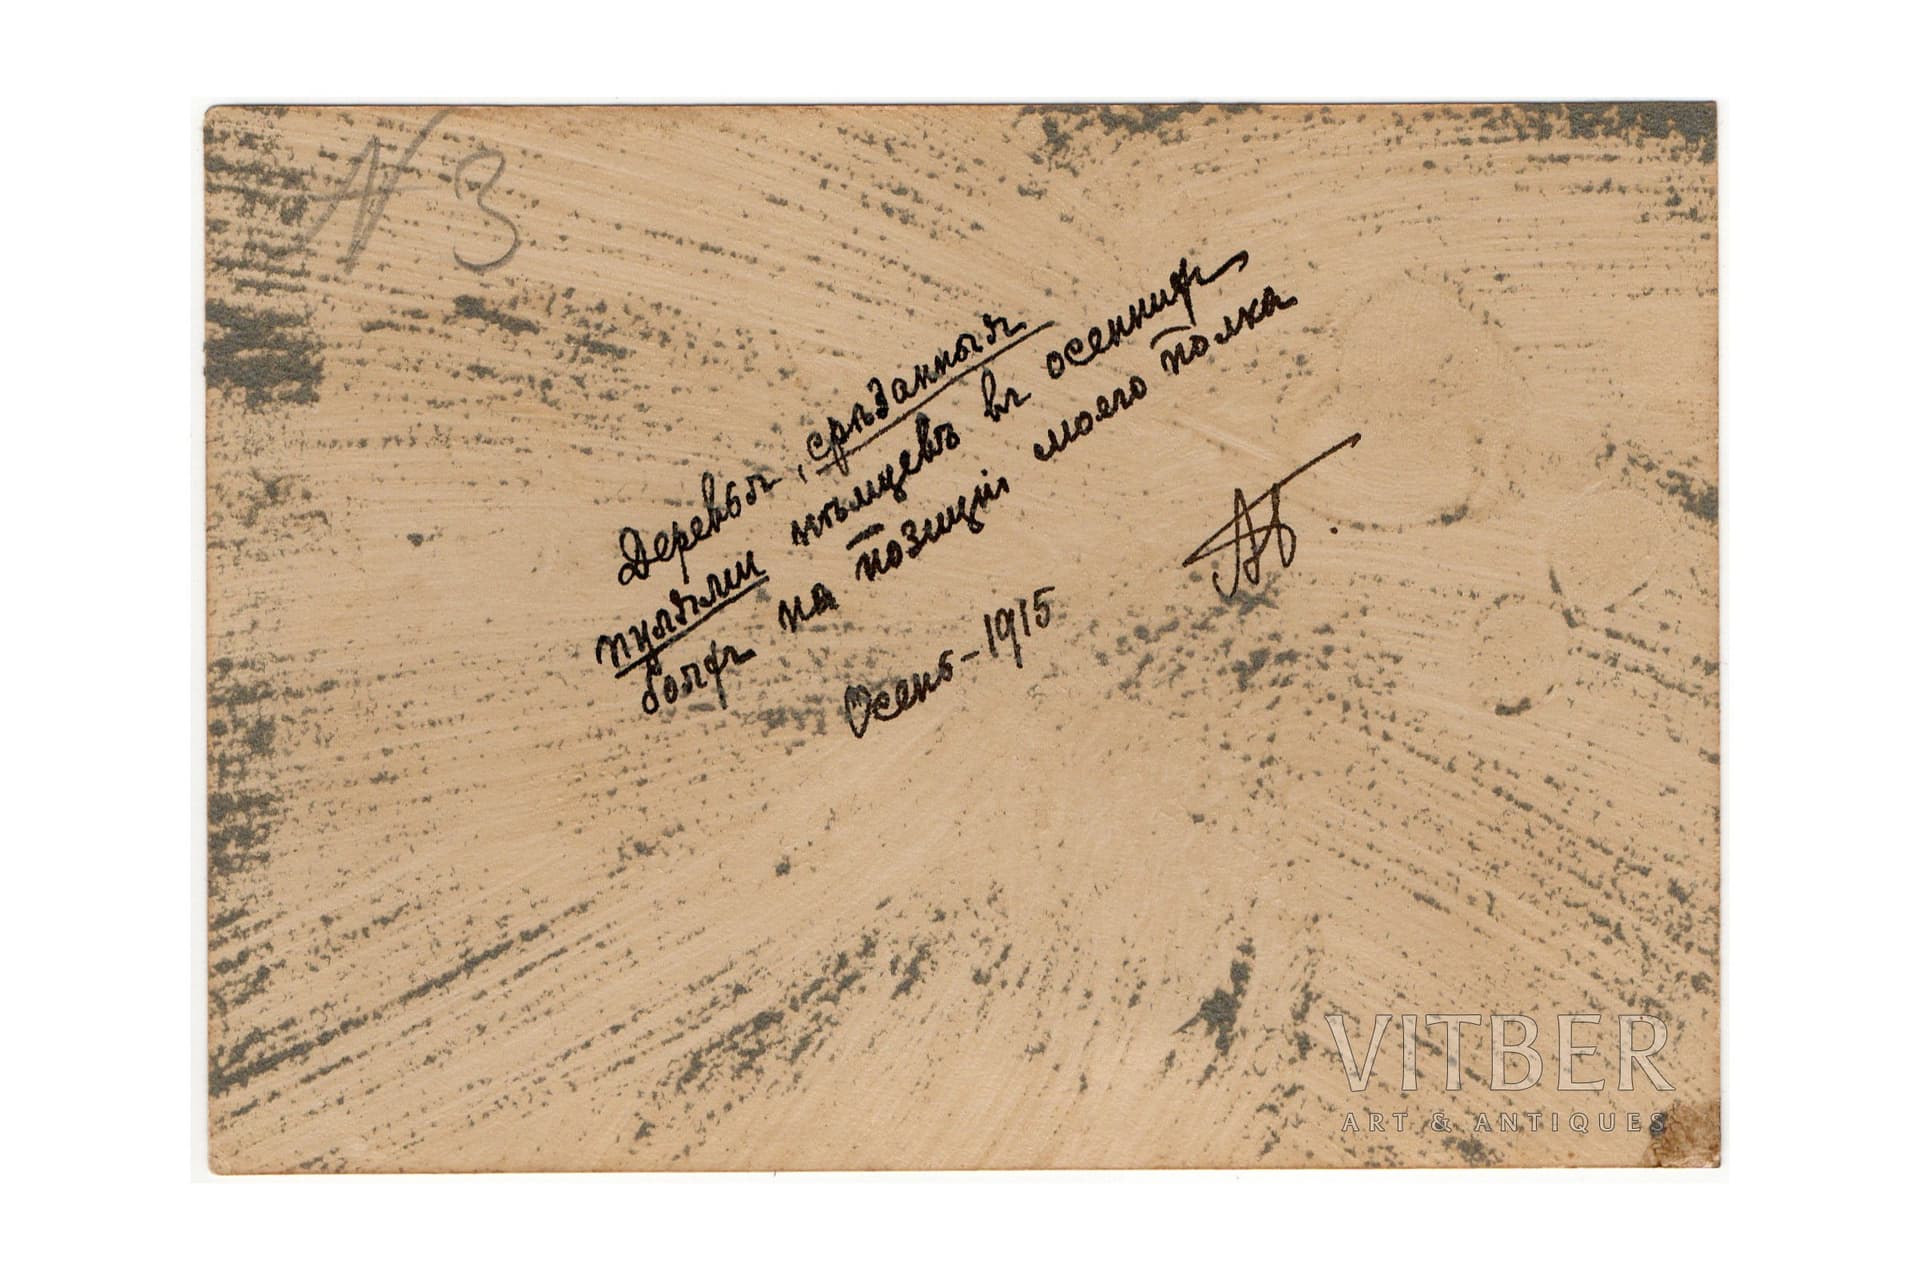 N 3
Деревья, срѣзанныя
пулями нѣмцевъ въ осеннихъ
бояхъ на позиціи моего полка
Осень-1915
VITBER
ART & ANTIQUES